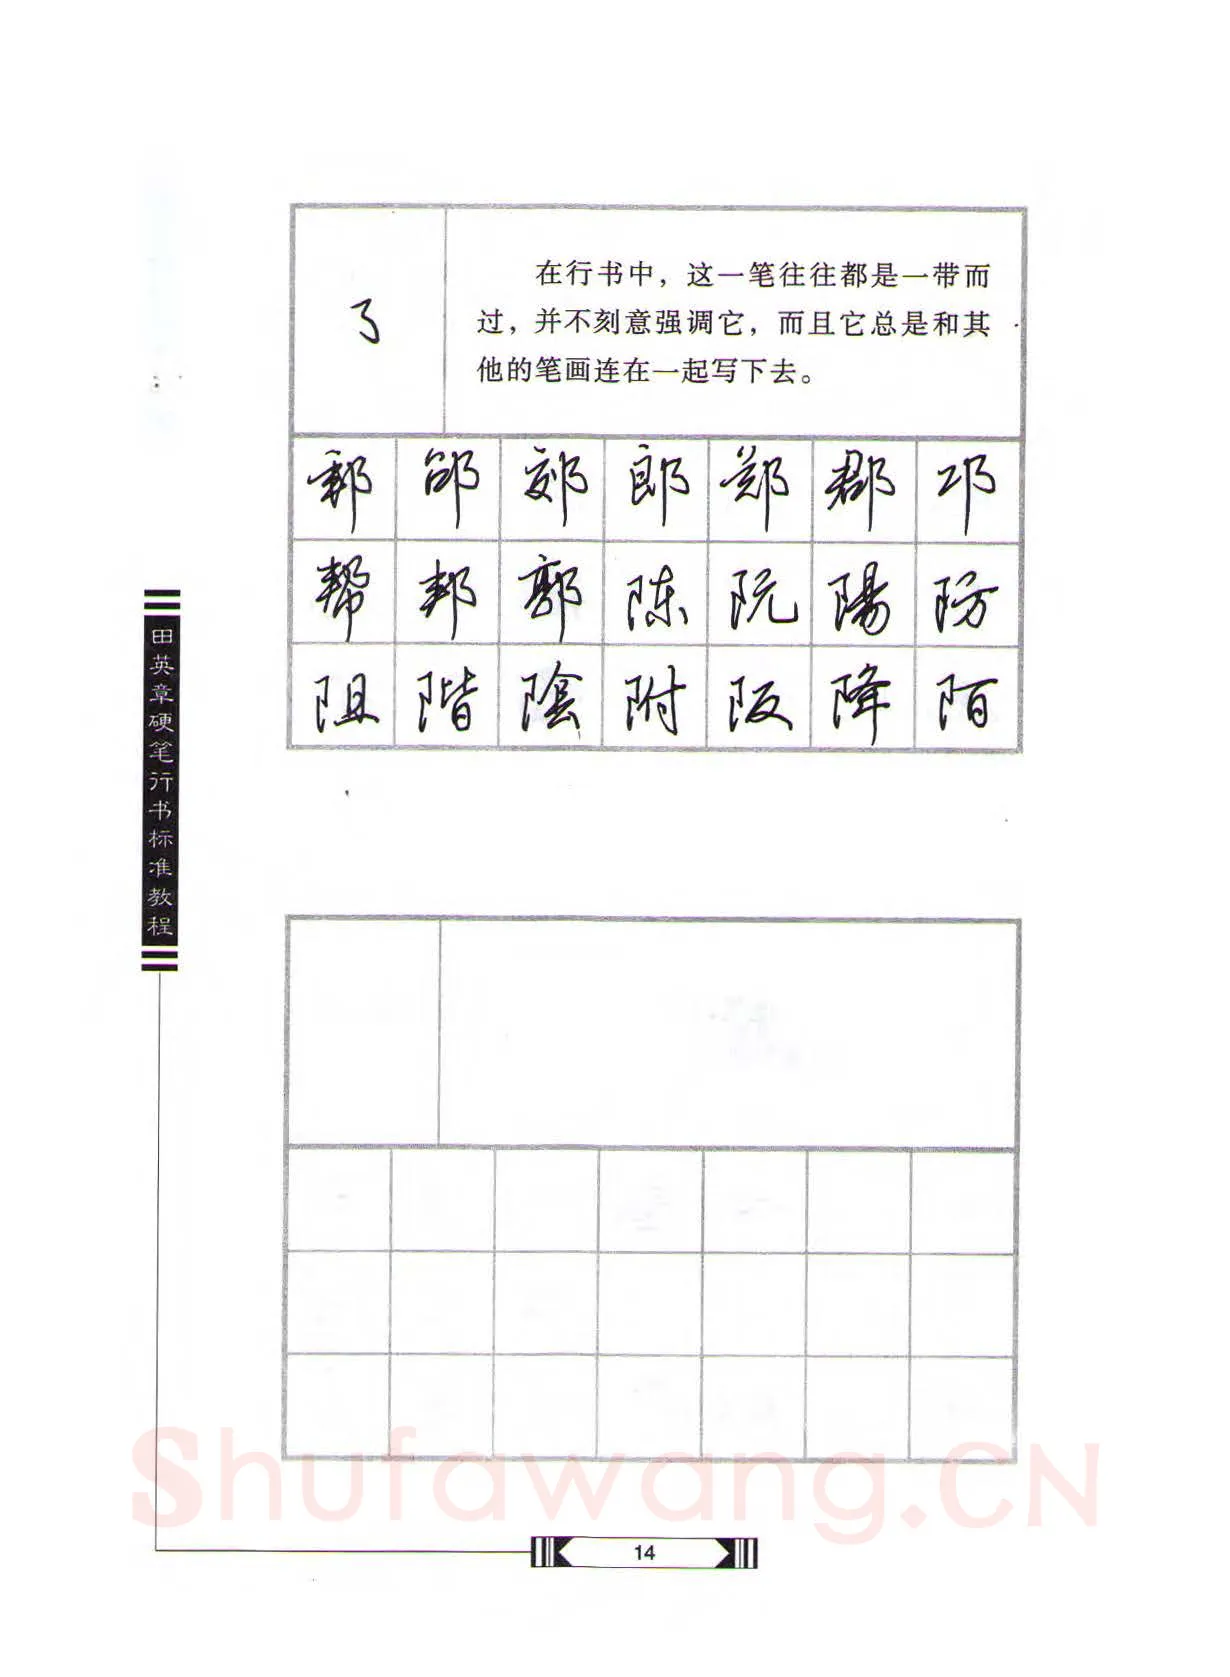 在行书中，这一笔往往都是一带而
过，并不刻意强调它，而且它总是和其
他的笔画连在一起写下去。
邵 郊 郎 郑 郡 邛
帮 邦 郭 陈 阮 陽 防
阻 階 陰 附 阪 降 陌
田英章硬笔行书标准教程
Shufawang.CN
14